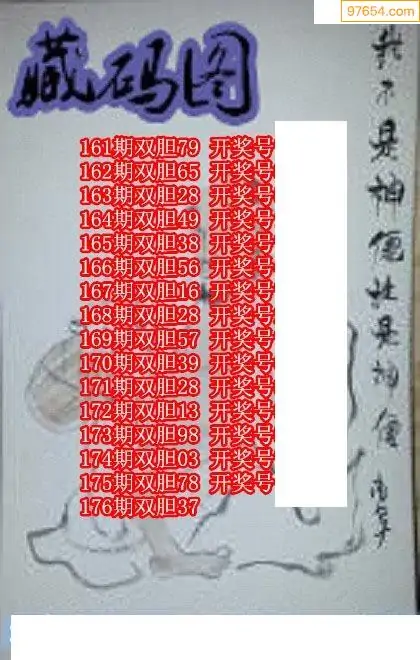 97654.com
藏码图
161期双胆79 开奖号
162期双胆65 开奖号
163期双胆28 开奖号
164期双胆49 开奖号
165期双胆38 开奖号
166期双胆56 开奖号
167期双胆16 开奖号
168期双胆28 开奖号
169期双胆57 开奖号
170期双胆39 开奖号
171期双胆28 开奖号
172期双胆13 开奖号
173期双胆98 开奖号
174期双胆03 开奖号
175期双胆78 开奖号
176期双胆37
我不是神僊是神僊